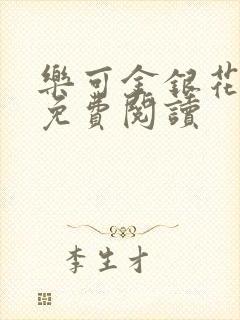 樂可金銀花
免費閱讀
李生才